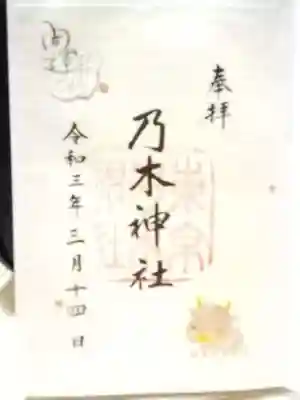 奉拝
乃木神社
令和三年三月十四日
開運